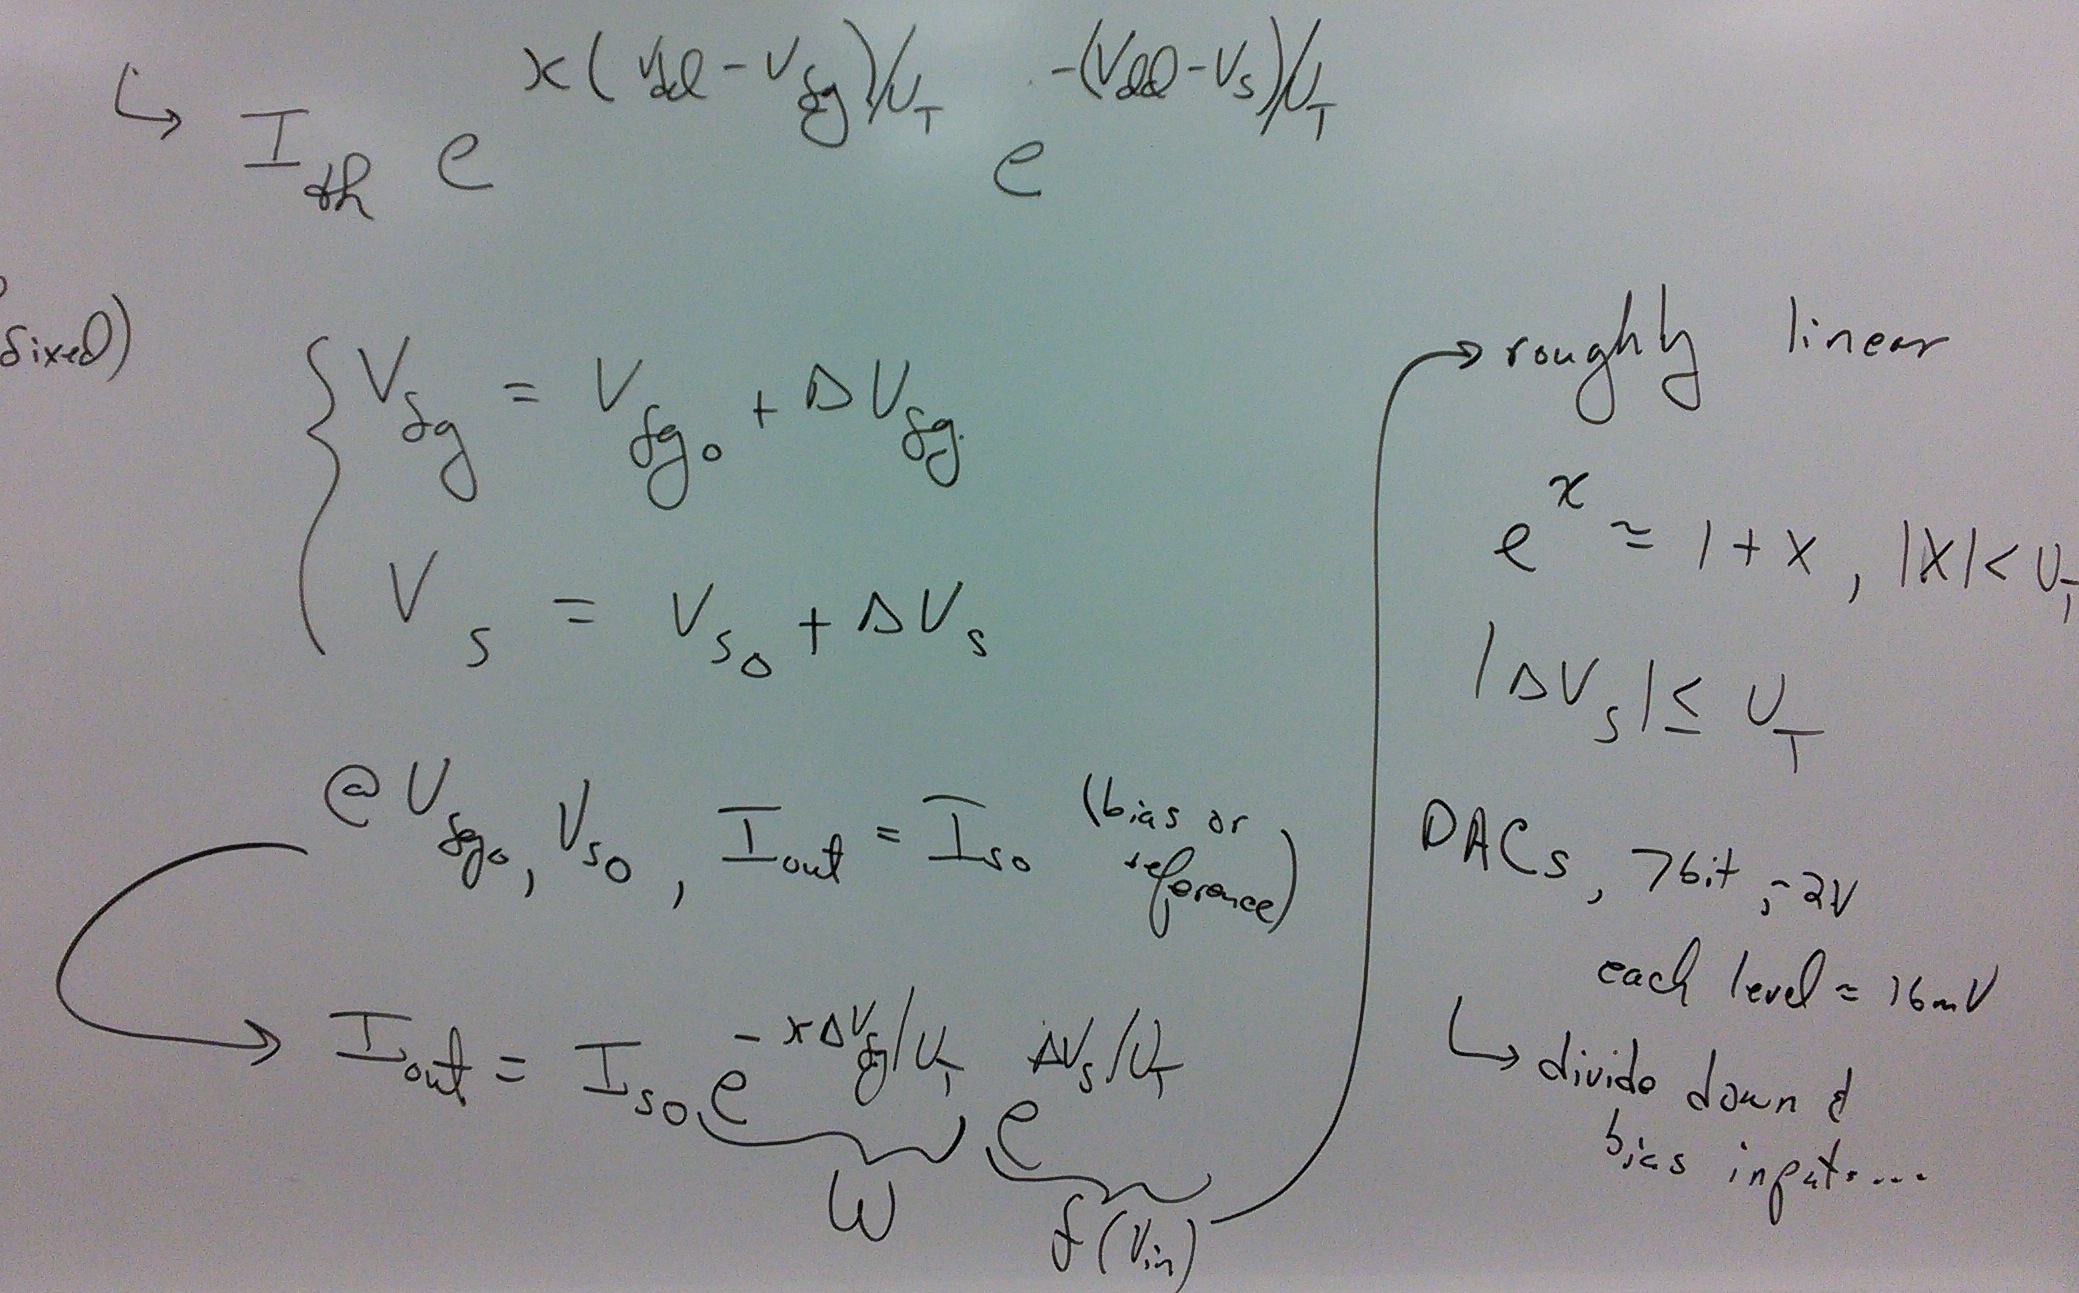 ↳ I_th e^{κ(Vdd - V_fg)/U_T} e^{-(Vdd - V_s)/U_T}
fixed)
{ V_fg = V_fg0 + ΔV_fg
V_s = V_s0 + ΔV_s
@ V_fg0, V_s0, I_out = I_s0 (bias or
reference)
→ I_out = I_s0 e^{-κΔV_fg/U_T} e^{ΔV_s/U_T}
W
f(V_in)
→ roughly linear
e^x ≈ 1 + x, |x| < U_T
|ΔV_s| ≤ U_T
DACs, 7bit, ~2V
each level ≈ 16mV
↳ divide down &
bias inputs....